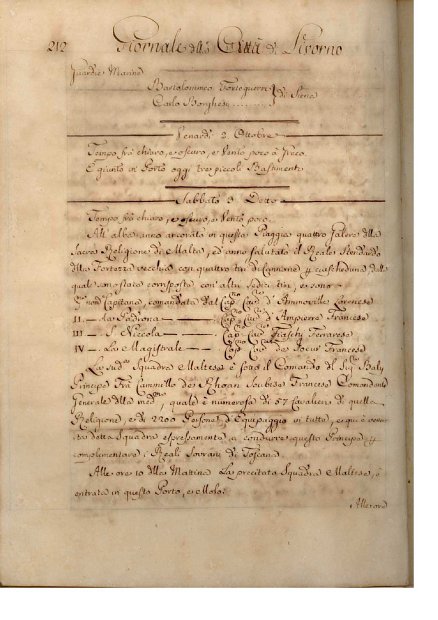 212 Giornale della Città di Livorno
Guardie Marine
Bartolommeo Forteguerri
Carlo Borghesi .......... } di Siena
Venerdì 2. Ottobre
Tempo frà chiaro, e oscuro, e Vento poco à Greco.
È giunto in Porto oggi tre piccoli Bastimenti
Sabbato 3 Detto
Tempo frà chiaro, e oscuro, e Vento poco.
All' alba anno ancorato in questa Piaggia quattro Galere della
Sacra Religione di Malta, ed anno salutato il Reale Stendardo
della Fortezza vecchia con quattro tiri di Cannone p ciascheduna dalla
quale son state corrisposte con altri sedici tiri, e sono
Capitana, comandata dal Cap. Cav. d'
II. — La Padrona — Cap. Cav. d' Ampierre Francese
III — S. Niccola — Cap. Cav. Fiaschi Ferrarese
IV — La Magistrale — Cap. Cav. de Francese
La sud. Squadra Maltese è sotto il Comando del Sig. Balì
Principe Frà Cammillo de Rhoan Soubise Francese Comandante
Generale della med., quale è numerosa di 57 Cavalieri di quella
Religione, e di 2200 Persone d' Equipaggio in tutto, e qui è venuta
detta Squadra espressamente a condurre questo Principe p
complimentare i Reali Sovrani di Toscana.
Alle ore 10 della Mattina La precitata Squadra Maltese, è
entrata in questo Porto, e Molo.
Alle ore